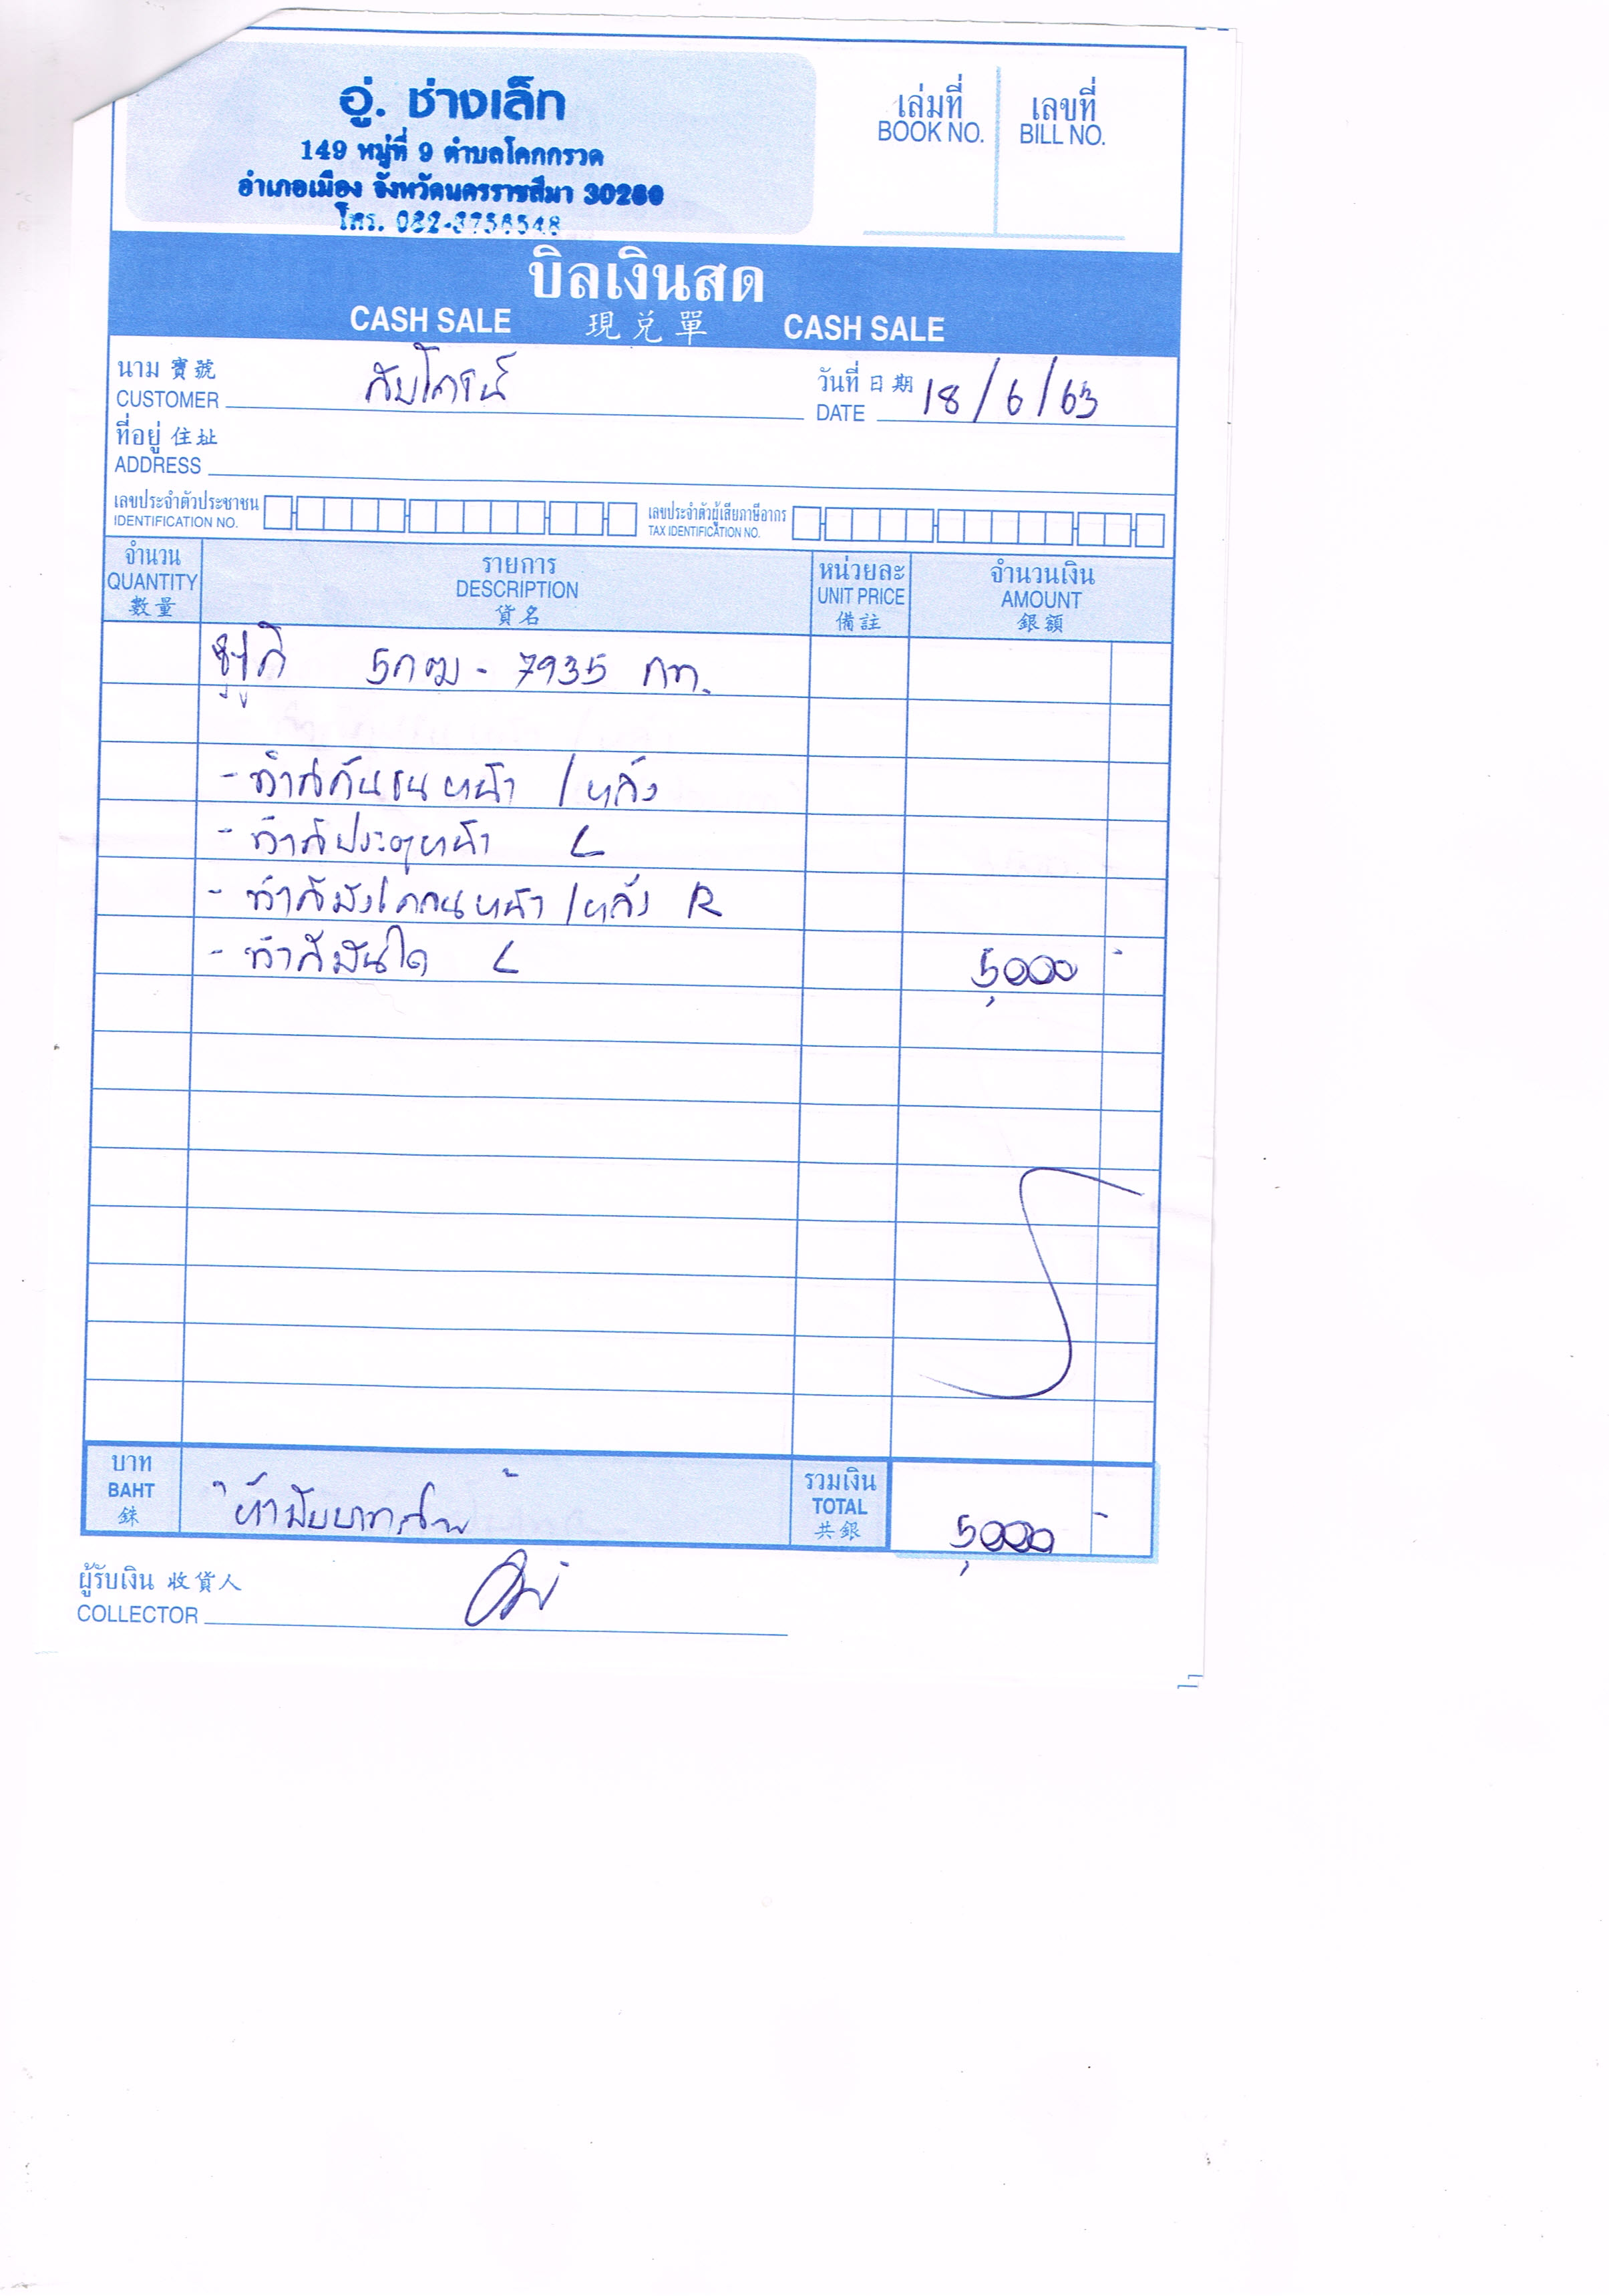 อู่. ช่างเล็ก
149 หมู่ที่ 9 ตำบลโคกกรวด
อำเภอเมือง จังหวัดนครราชสีมา 30280
โทร. 082-3756548
เล่มที่ เลขที่
BOOK NO. BILL NO.
บิลเงินสด
CASH SALE 現兌單 CASH SALE
นาม 寶號 วันที่ 日期 18/6/63
CUSTOMER DATE
ที่อยู่ 住址
ADDRESS
เลขประจำตัวประชาชน เลขประจำตัวผู้เสียภาษีอากร
IDENTIFICATION NO. TAX IDENTIFICATION NO.
จำนวน รายการ หน่วยละ จำนวนเงิน
QUANTITY DESCRIPTION UNIT PRICE AMOUNT
數量 貨名 備註 銀額
5กฒ - 7935 กท.
- ทำสีกันชนหน้า / หลัง
- ทำสีประตูหน้า L
- ทำสีบังโคลนหน้า / หลัง R
- ทำสีบันได L 5,000 -
บาท รวมเงิน
BAHT ห้าพันบาทถ้วน TOTAL 5,000 -
銖 共銀
ผู้รับเงิน 收貨人
COLLECTOR